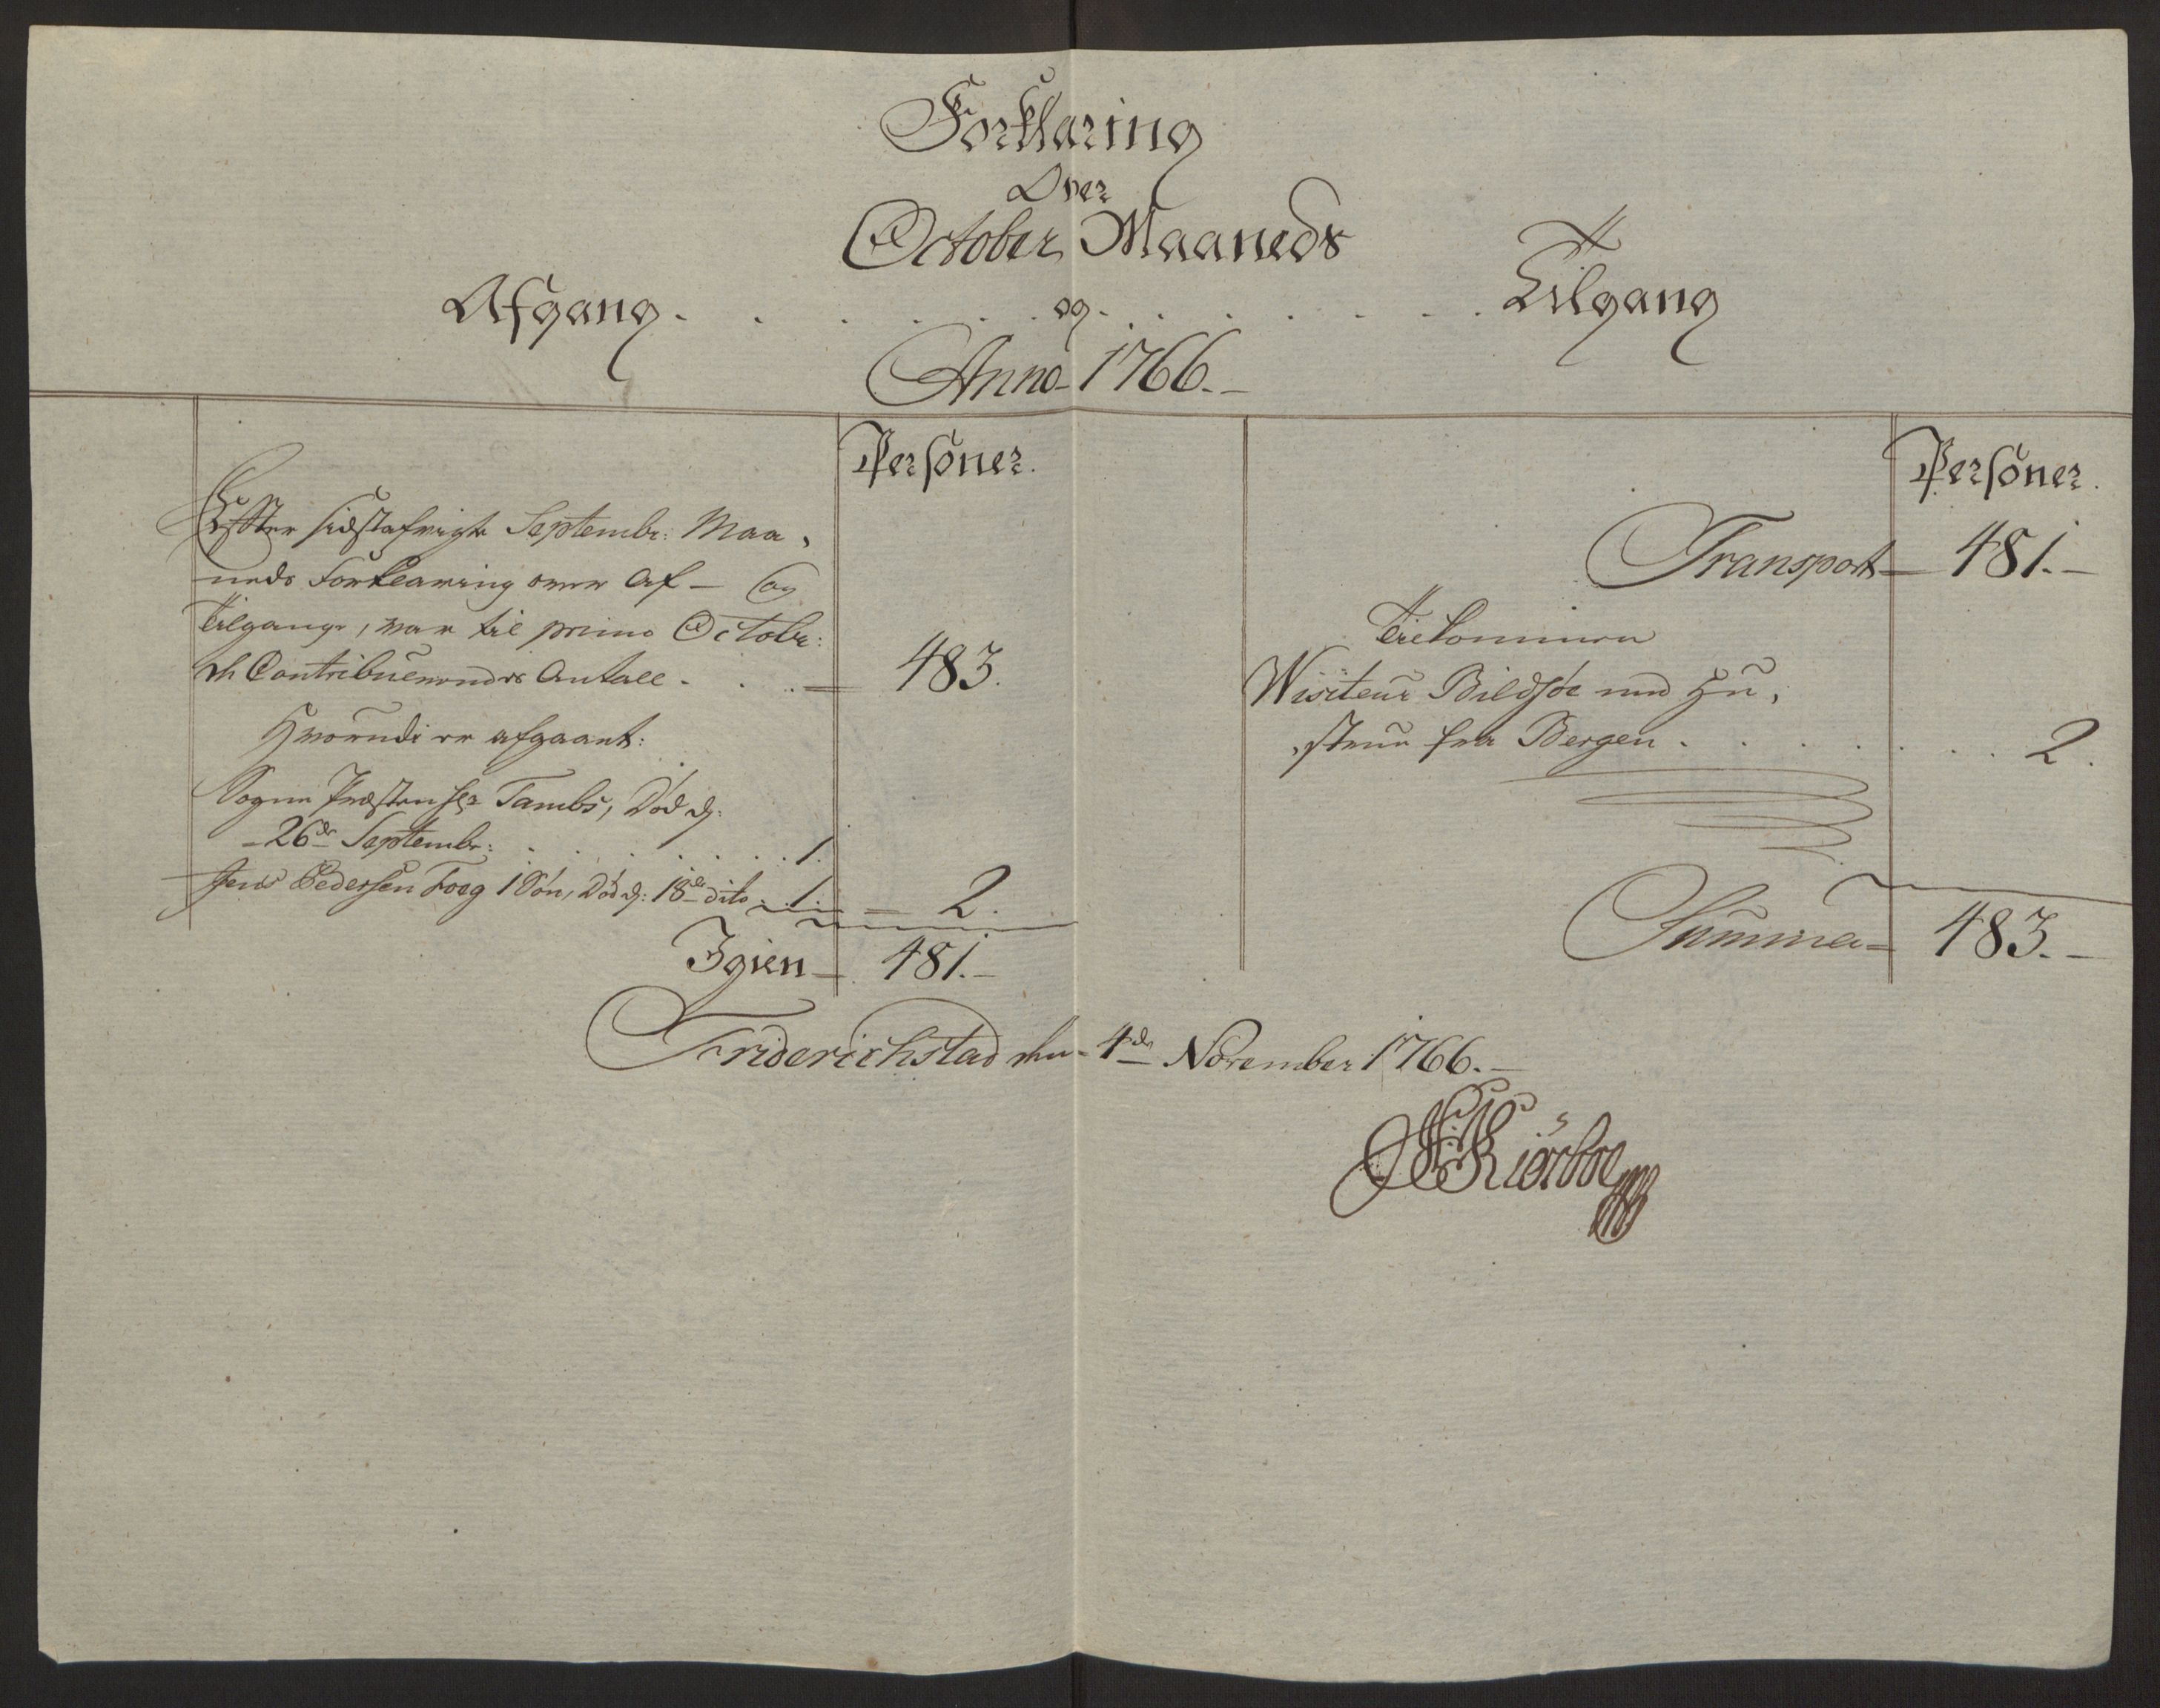 Forklaring
Over
October Maaneds
Afgang . . . . . og . . . . . . Tilgang
Anno 1766.
Personer.
Efter sidstafvigte Septembr: Maa,
neds Forklaring over Af- og
Tilgange, var til primo Octobr:
de Contribuerendes Antall . . . 483.
Hvorudi er afgaaet:
Sogne Præsten Hr Tambs, Død d:
26de Septembr: . . . . . . 1.
Jens Pedersen Foeg 1 Søn, Død d: 18de dito . 1. 2.
Igien 481.
Personer.
Transport 481.
Tilkommen
Wisiteur Bildsøe med Hu,
,strue fra Bergen . . . . . . 2.
Summa 483.
Friderichstad den 4de November 1766.
Kiørboe